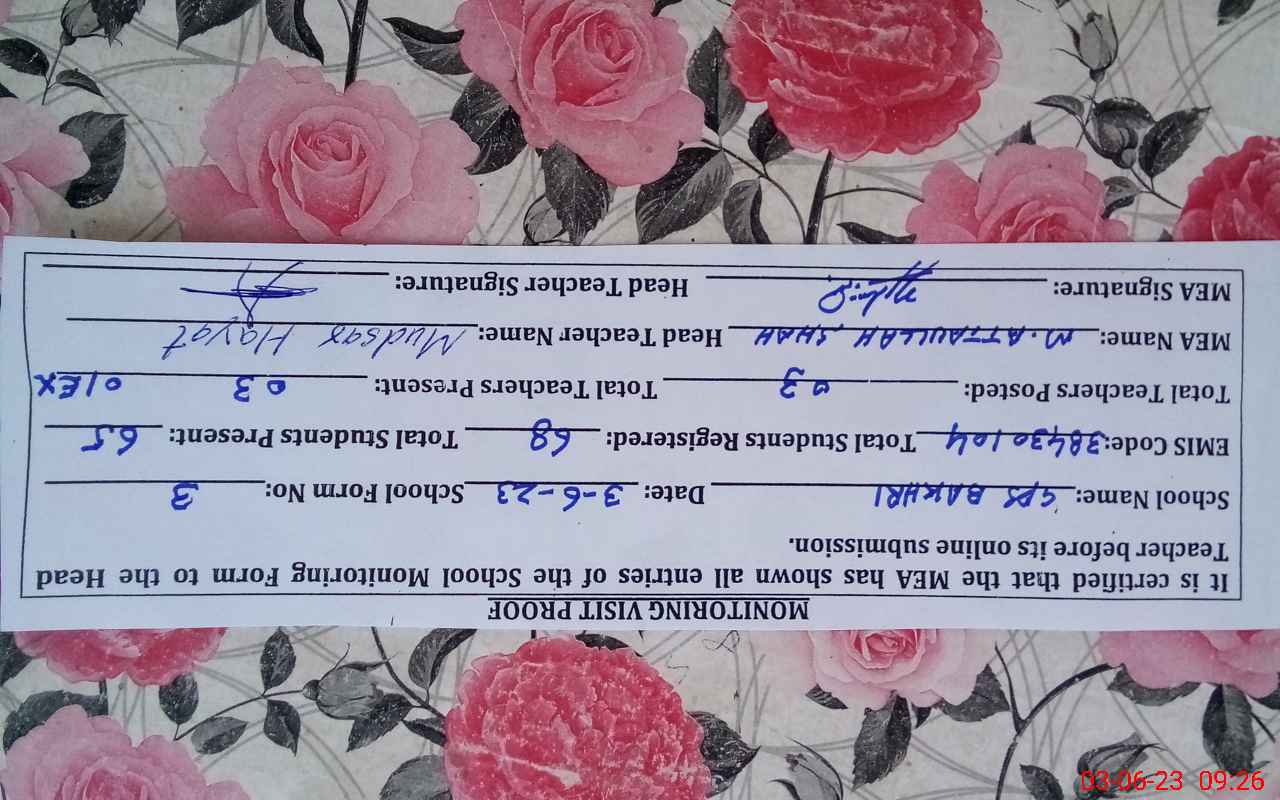 MONITORING VISIT PROOF
It is certified that the MEA has shown all entries of the School Monitoring Form to the Head
Teacher before its online submission.
School Name: GPS BAKHRI Date: 3-6-23 School Form No: 3
EMIS Code: 38430104 Total Students Registered: 68 Total Students Present: 65
Total Teachers Posted: 03 Total Teachers Present: 03 01EX
MEA Name: M. ATTAULLAH SHAH Head Teacher Name: Mudsar Hayat
MEA Signature: Head Teacher Signature:
03-06-23 09:26